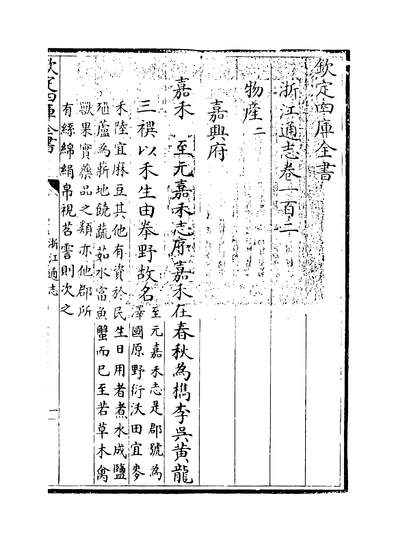 欽定四庫全書
浙江通志卷一百二
物産二
嘉興府
嘉禾 至元嘉禾志序嘉禾在春秋為檇李吳黃龍
三禩以禾生由拳野故名
至元嘉禾志是郡號為
澤國原野衍沃田宜麥
禾陸宜麻豆其他有資於民生日用者煮水成鹽
殖蘆為薪地饒蔬茹水富魚蟹而已至若草木禽
獸果實藥品之類亦他郡所
有絲綿絹帛視苕霅則次之
欽定四庫全書
浙江通志
一